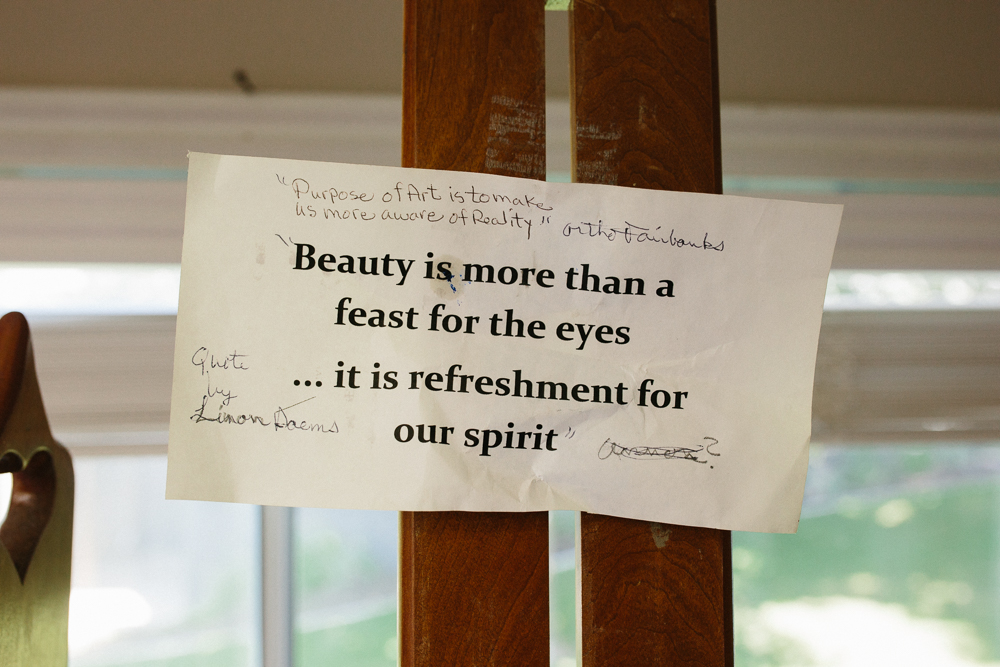 "Purpose of Art is to make
us more aware of Reality" ortho Fairbanks
"Beauty is more than a
feast for the eyes
... it is refreshment for
our spirit" ?
Quote
by
Simon Daems